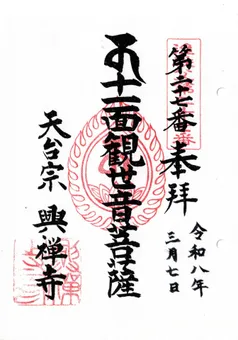 第二十七番
奉拝
令和八年
三月七日
十一面観世音菩薩
天台宗 興禅寺